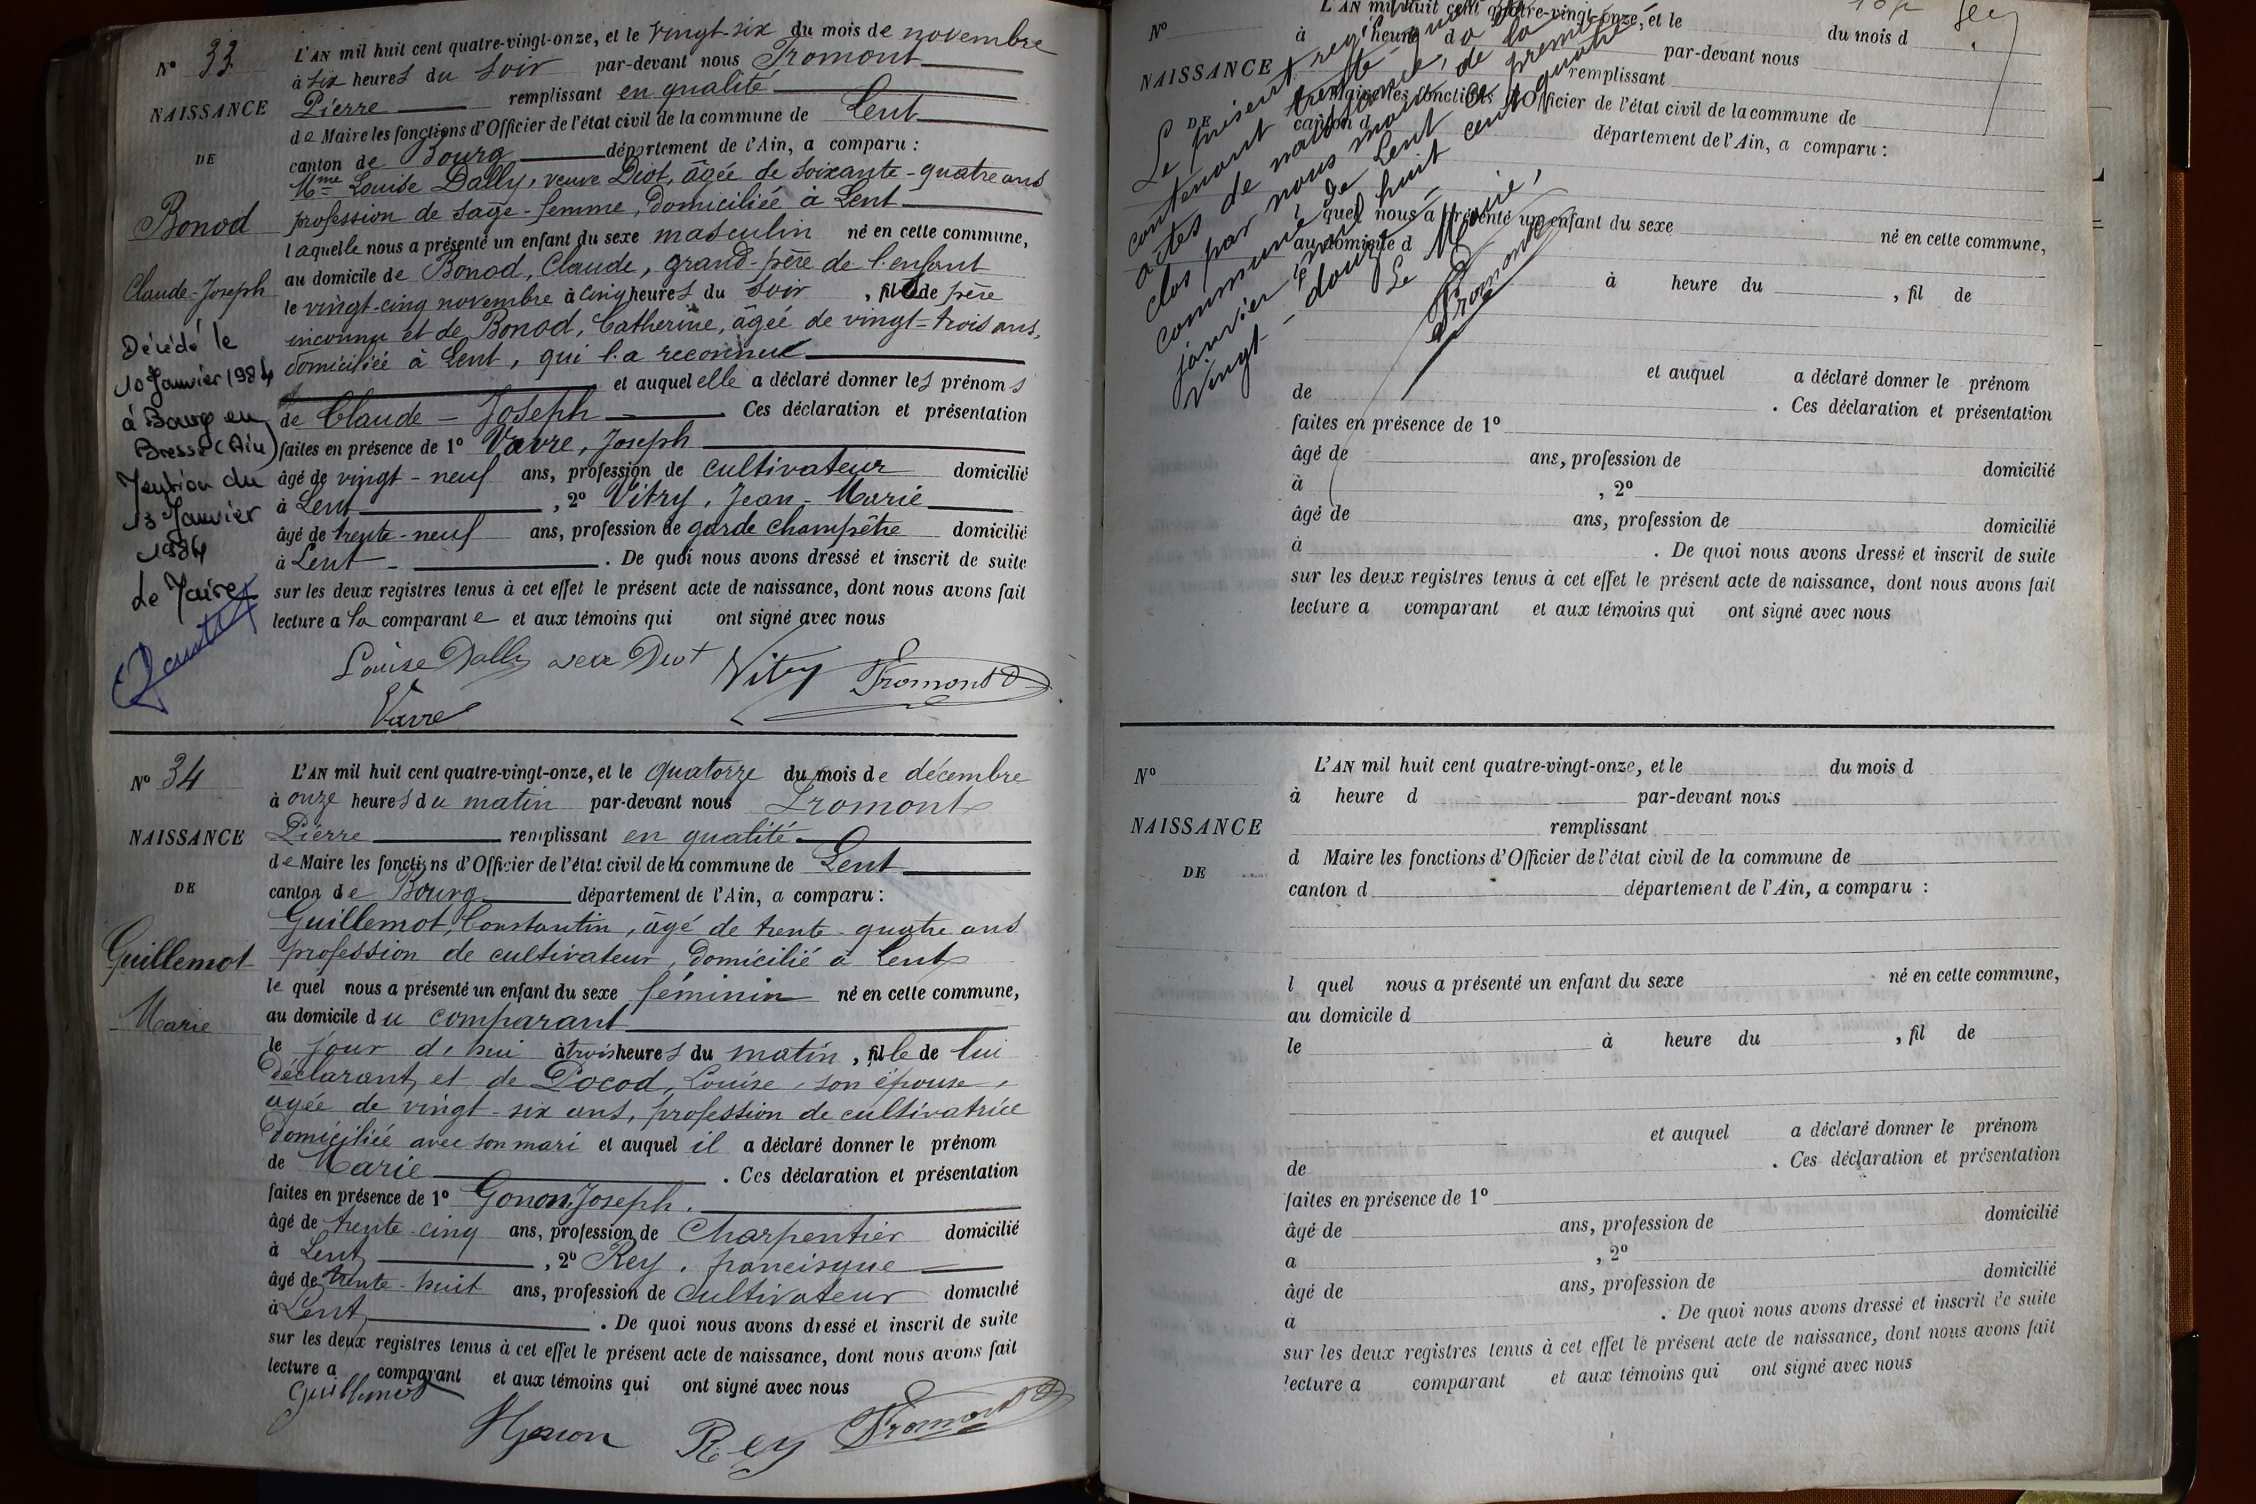 N° 33
L'AN mil huit cent quatre-vingt-onze, et le vingt-six du mois de novembre
à six heures du soir par-devant nous Fromont
Pierre remplissant en qualité
de Maire les fonctions d'Officier de l'état civil de la commune de Lent
canton de Bourg département de l'Ain, a comparu :
Mme Louise Dally, veuve Diot, âgée de soixante-quatre ans
profession de sage-femme, domiciliée à Lent
laquelle nous a présenté un enfant du sexe masculin né en cette commune,
au domicile de Bonod, Claude, grand-père de l'enfant
le vingt-cinq novembre à cinq heures du soir, fils de père
inconnu et de Bonod, Catherine, âgée de vingt-trois ans,
domiciliée à Lent, qui l'a reconnu
et auquel elle a déclaré donner les prénoms
de Claude-Joseph. Ces déclaration et présentation
faites en présence de 1° Vavre, Joseph
âgé de vingt-neuf ans, profession de cultivateur domicilié
à Lent, 2° Vitry, Jean-Marie
âgé de trente-neuf ans, profession de garde champêtre domicilié
à Lent. De quoi nous avons dressé et inscrit de suite
sur les deux registres tenus à cet effet le présent acte de naissance, dont nous avons fait
lecture a la comparante et aux témoins qui ont signé avec nous
Louise Dally veuve Diot Vitry Fromont
Vavre
NAISSANCE
DE
Bonod
Claude-Joseph
Décédé le
10 Janvier 1984
à Bourg en
Bresse (Ain)
Mention du
13 Janvier
1984
Le Maire
N° 34
L'AN mil huit cent quatre-vingt-onze, et le quatorze du mois de décembre
à onze heures du matin par-devant nous Fromont
Pierre remplissant en qualité
de Maire les fonctions d'Officier de l'état civil de la commune de Lent
canton de Bourg département de l'Ain, a comparu :
Guillemot, Constantin, âgé de trente-quatre ans
profession de cultivateur, domicilié à Lent
le quel nous a présenté un enfant du sexe féminin né en cette commune,
au domicile du comparant
le jour d'hui à trois heures du matin, fille de lui
déclarant et de Pocod, Louise, son épouse,
agée de vingt-six ans, profession de cultivatrice
domiciliée avec son mari et auquel il a déclaré donner le prénom
de Marie. Ces déclaration et présentation
faites en présence de 1° Gonon, Joseph.
âgé de trente-cinq ans, profession de Charpentier domicilié
à Lent, 2° Rey, francisque
âgé de trente-huit ans, profession de cultivateur domicilié
à Lent. De quoi nous avons dressé et inscrit de suite
sur les deux registres tenus à cet effet le présent acte de naissance, dont nous avons fait
lecture a comparant et aux témoins qui ont signé avec nous
Guillemot
Gonon Rey Fromont
NAISSANCE
DE
Guillemot
Marie
N°
NAISSANCE
DE
L'AN mil huit cent quatre-vingt-onze, et le du mois d
à heure d par-devant nous
remplissant
Maire les fonctions d'Officier de l'état civil de la commune de
canton d département de l'Ain, a comparu :
l quel nous a présenté un enfant du sexe né en cette commune,
au domicile d
à heure du, fil de
et auquel a déclaré donner le prénom
de. Ces déclaration et présentation
faites en présence de 1°
âgé de ans, profession de domicilié
à, 2°
âgé de ans, profession de domicilié
à. De quoi nous avons dressé et inscrit de suite
sur les deux registres tenus à cet effet le présent acte de naissance, dont nous avons fait
lecture a comparant et aux témoins qui ont signé avec nous
Le présent registre
contenant trente-quatre
actes de naissance, a été
clos par nous maire de la
commune de Lent le premier
janvier mil huit cent quatre
vingt-douze
Le Maire,
Fromont
N°
NAISSANCE
DE
L'AN mil huit cent quatre-vingt-onze, et le du mois d
à heure d par-devant nous
remplissant
d Maire les fonctions d'Officier de l'état civil de la commune de
canton d département de l'Ain, a comparu :
l quel nous a présenté un enfant du sexe né en cette commune,
au domicile d
le à heure du, fil de
et auquel a déclaré donner le prénom
de. Ces déclaration et présentation
faites en présence de 1°
âgé de ans, profession de domicilié
a, 2°
âgé de ans, profession de domicilié
a. De quoi nous avons dressé et inscrit de suite
sur les deux registres tenus à cet effet le présent acte de naissance, dont nous avons fait
lecture a comparant et aux témoins qui ont signé avec nous